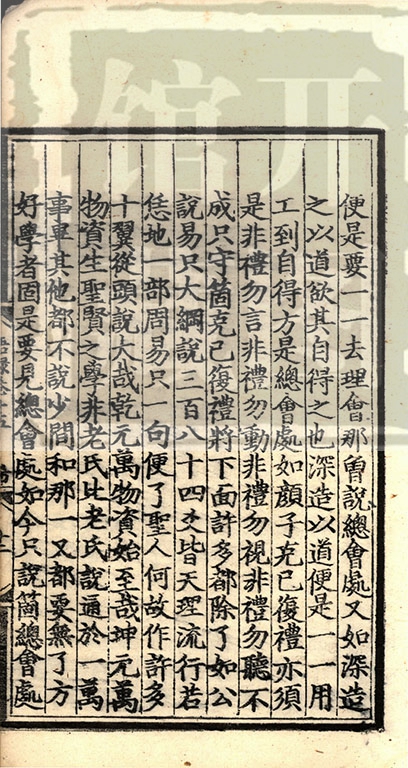 便是要一一去理會那曾說總會處又如深造
之以道欲其自得之也深造以道便是一一用
工到自得方是總會處如顏子克己復禮亦須
是非禮勿言非禮勿動非禮勿視非禮勿聽不
成只守箇克己復禮將下面許多都除了如公
說易只大綱說三百八十四爻皆天理流行若
恁地一部周易只一句便了聖人何故作許多
十翼從頭說大哉乾元萬物資始至哉坤元萬
物資生聖賢之學非老氏比老氏說通於一萬
事畢其他都不說少間和那一又都要無了方
好學者固是要見總會處如今只說箇總會處